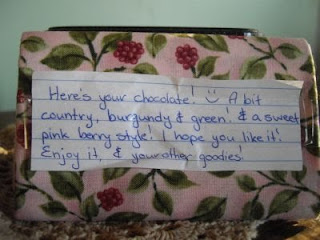 Here's your chocolate! ☺ A bit
country, burgundy & green! & a sweet
pink berry style! I hope you like it!
Enjoy it, & your other goodies!